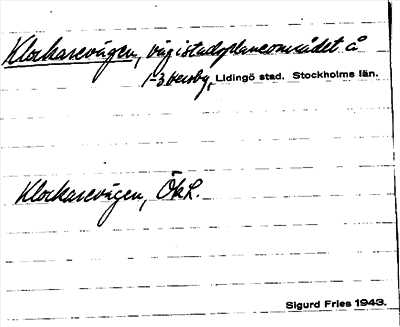 Klockarevägen, väg i stadsplaneområdet å
1-3 Hersby, Lidingö stad. Stockholms län.
Klockarevägen, Ök L.
Sigurd Fries 1943.